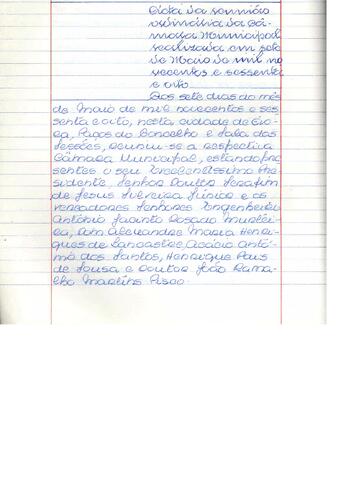 Acta da reunião
ordinária da Câ-
mara Municipal
realizada em sete
de Maio de mil no
vecentos e sessenta
e oito
Aos sete dias do mês
de Maio de mil novecentos e ses
senta e oito, nesta cidade de Évo-
ra, Paços do Concelho e Sala das
Sessões, reuniu-se a respectiva
Câmara Municipal, estando pre
sentes o seu Excelentíssimo Pre
sidente, Senhor Doutor Serafim
de Jesus Silveira Júnior e os
vereadores Senhores Engenheiro
António Jacinto Rosado Murtei-
ra, Dom Alexandre Maria Henri-
ques de Lancastre, Acácio Antó-
nio dos Santos, Henrique Pais
de Sousa e Doutor João Rama-
lho Martins Pisco.